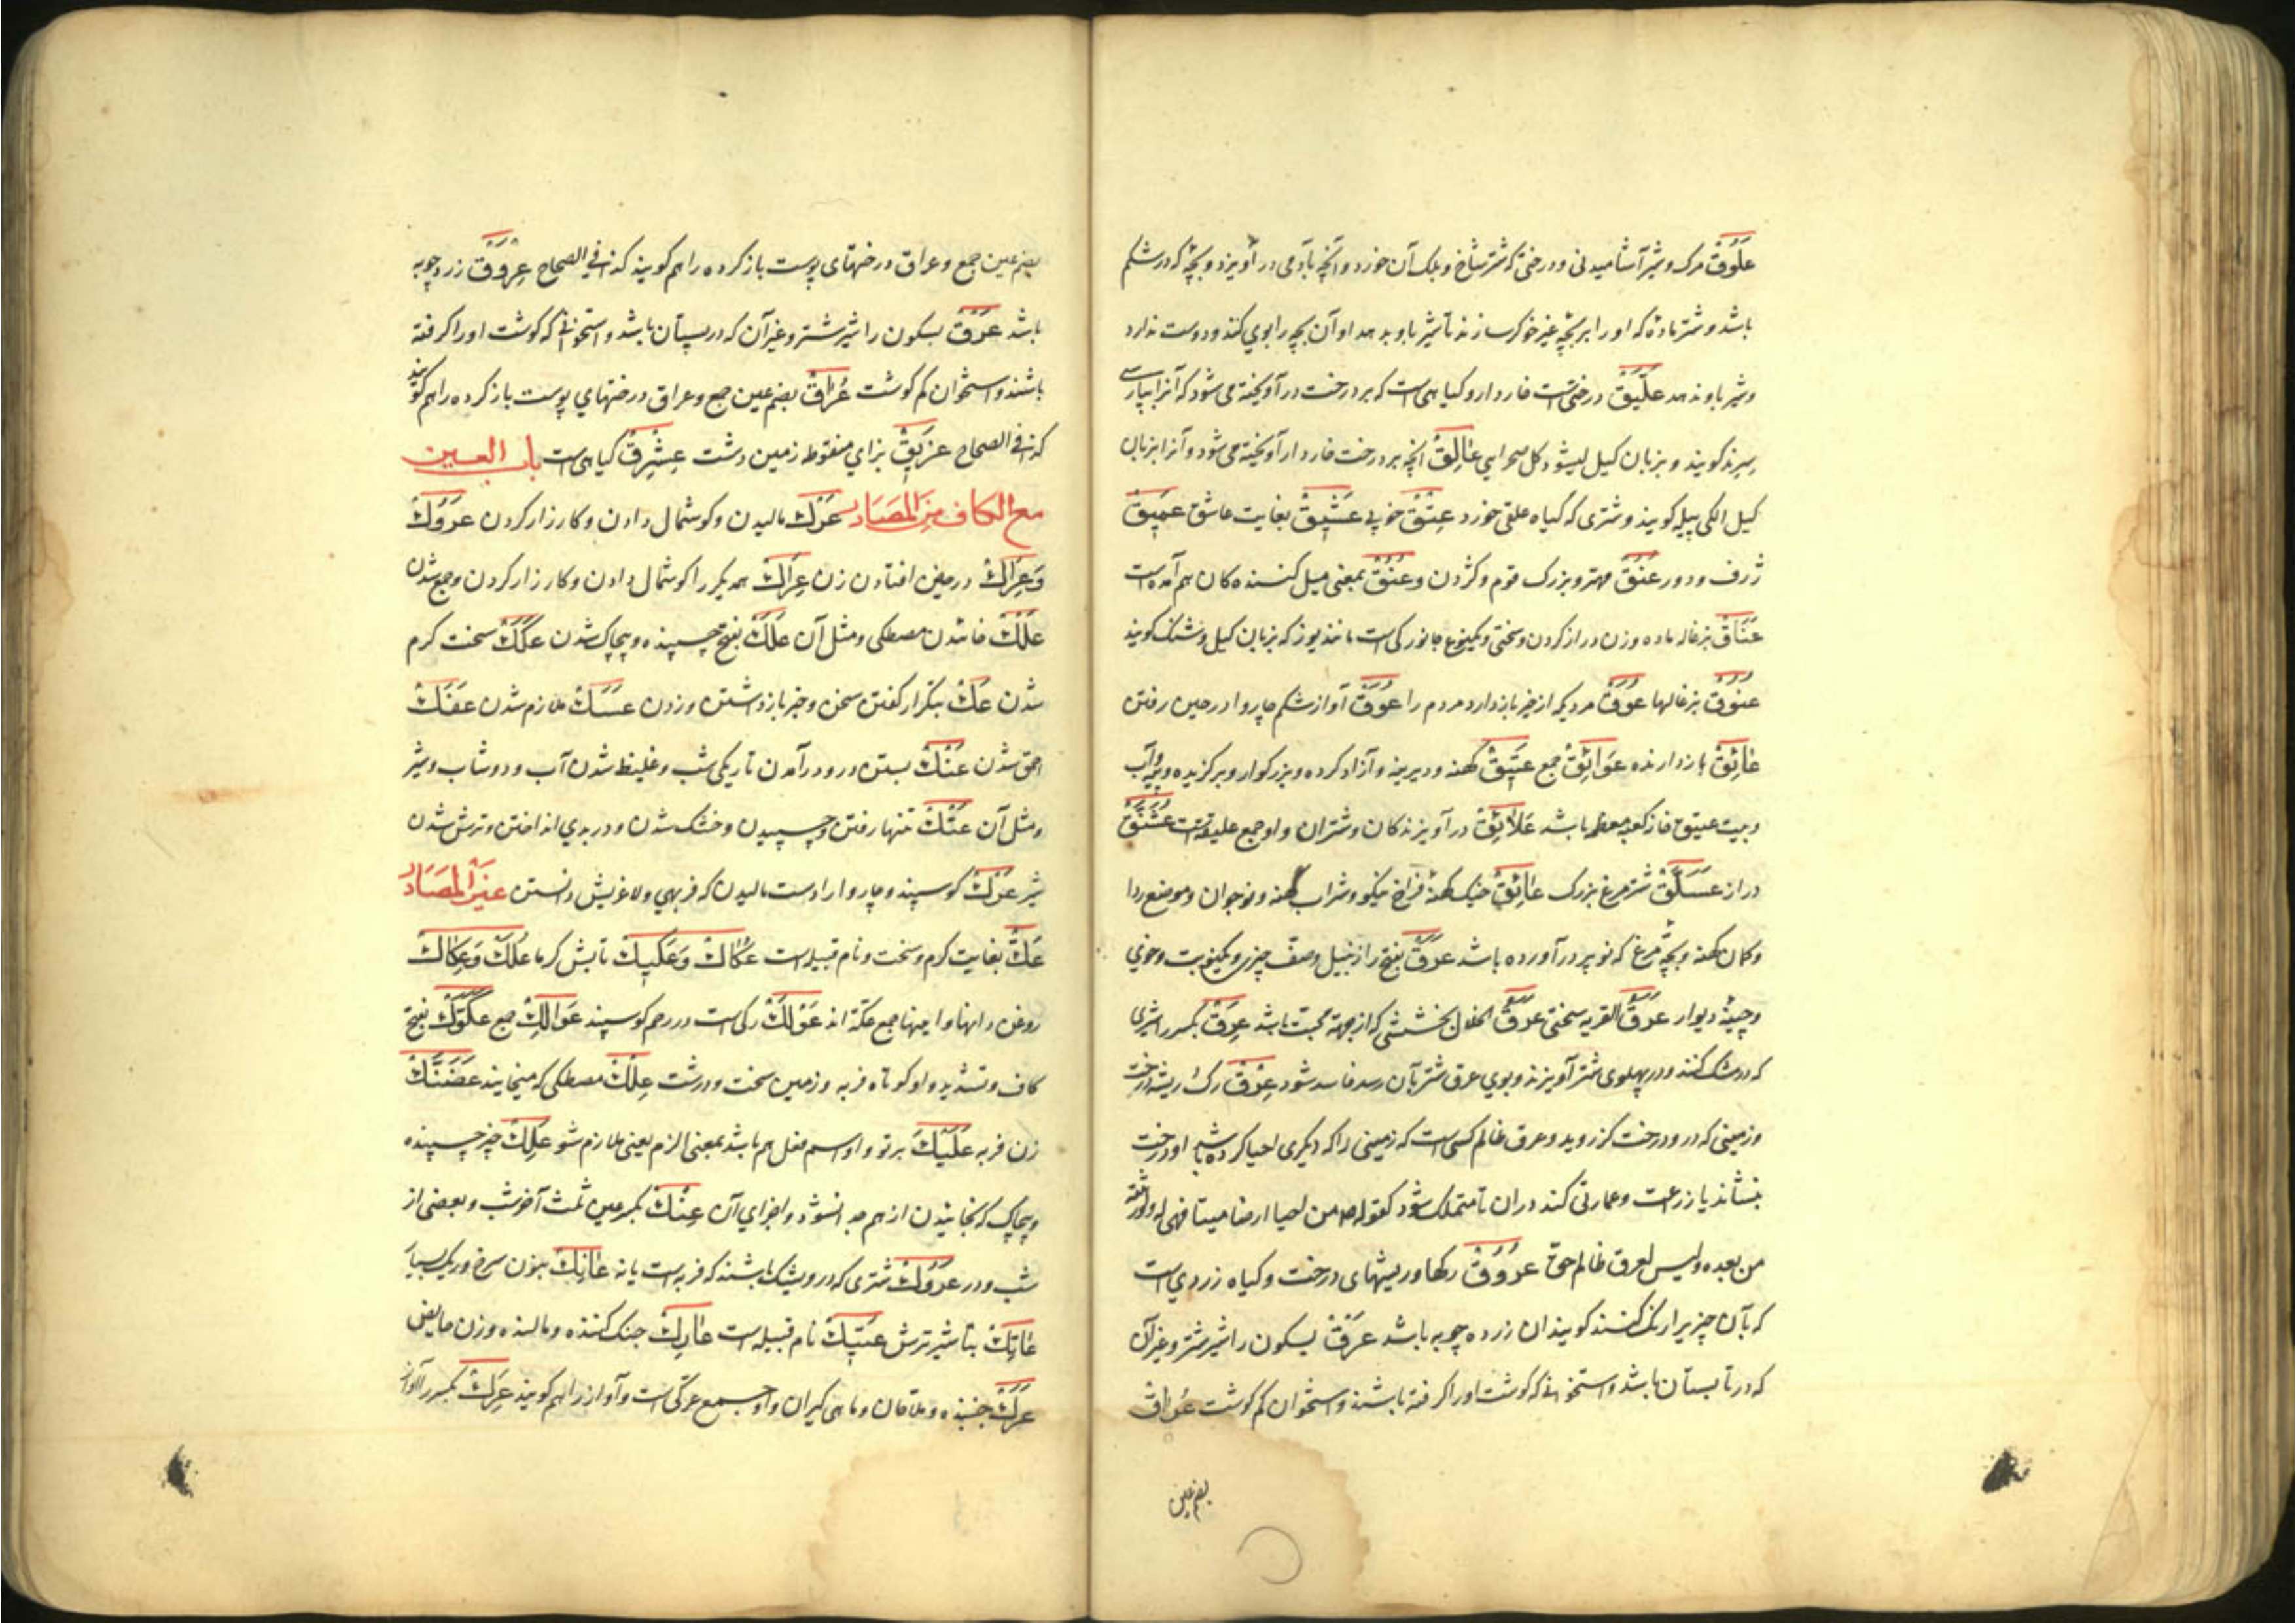 عَلُوقْ مرک و شیر آشامیدنی و درختی که شتر شاخ و بلک آن خورد و آنچه بآدمی در آویزد و بچهٔ که در شکم
باشد و شتر مادهٔ که او را بر بچهٔ غیر خوکر سازند تا شیر باو بدهد او آن بچه را بوی کند و دوست ندارد
و شیر باو ندهد عُلَّیقْ درختیست خاردار و کیاهی است که بر درخت در آویخته می شود که آنرا بپارسی
سریند کویند و بزبان کیل لیشو و کل صحرایی عَالِقْ آنچه بر درخت خاردار آویخته می شود و آنرا بزبان
کیل الکی پیله کویند و شتری که کیاه علقی خورد عِتْقْ خوبی عَشِیقْ بغایت عاشق عَمِیقْ
ژرف و دور عُنُقْ مهتر و بزرک قوم و کردن و عُنُقْ بمعنی میل کننده کان هم آمده است
عَنَاقْ بزغاله ماده و زن دراز کردن و سختی و یکنوع جانورکی است مانند یوز که بزبان کیل وشنک کویند
عُنُوقْ بزغالها عَوْقْ مردیکه از خیر باز دارد مردم را عَوَقْ آواز شکم چاروا در حین رفتن
عَائِقْ بازدارنده عَوَائِقْ جمع عَتِیقْ کهنه و دیرینه و آزاد کرده و بزرکوار و برکزیده و پیه آب
و بیت عتیق خانه کعبه معظمه باشد عَلَائِقْ در آویزندکان و شتران و او جمع علیقه است عَشَنَّقْ
دراز عَسَلَّقْ شترمرغ بزرک عَاتِقْ خیک کهنهٔ فراخ نیکو و شراب کهنه و نوجوان و موضع ردا
و کمان کهنه و بچهٔ مرغ که نو پر در آورده باشد عَرَقْ بفتح را زنبیل و صف چیزی و یکنوبت و خوی
و چینهٔ دیوار عَرَقْ القربه سختی عَرَقْ الخلال بخششی که از جهة محبت باشد عَرِقْ بکسر را شیری
که در مشک کنند و در پهلوی شتر آویزند و بوی عرق شتر بآن رسد فاسد شود عِرْقْ رک و ریشه درخت
و زمینی که در و درخت کز روید و عرق ظالم کسی است که زمینی را که دیکری احیا کرده باشد او درخت
بنشاند یا زرعت و عمارتی کند در ان تا متملک شود کقوله صه من احیا ارضا میتا فهی له ولورثته
من بعده و لیس لعرق ظالم حق عُرُوقْ رکها و ریشهای درخت و کیاه زردی است
که بآن چیزیرا رنک کنند کویند ان زرده چوبه باشد عَرْقْ بسکون را شیر شتر و غیر آن
که در تابستان باشد و استخوانی که کوشت او را کرفته باشند و استخوان کم کوشت عُرَاقْ
بضم عین
بضم عین جمع و عراق درختهای پوست باز کرده را هم کویند کذا فی الصحاح عُرُوقْ زرد چوبه
باشد عَرْقْ بسکون را شیر شتر و غیر آن که در پستان باشد و استخوانی که کوشت او را کرفته
باشند و استخوان کم کوشت عُرَاقْ بضم عین جمع و عراق درختهای پوست باز کرده را هم کویند
کذا فی الصحاح عَزِیقْ بزای منقوط زمین دشت عِشْرِقْ کیاهی است باب العین
مع الکاف من المصادر عَرْكْ مالیدن و کوشمال دادن و کارزار کردن عُرُوكْ
وَعِرَاكْ در حیض افتادن زن عِرَاكْ همدیکر را کوشمال دادن و کارزار کردن و جمع شدن
عَلْكْ خائیدن مصطکی و مثل آن عَلَكْ بفتح چسپنده و پیچاک شدن عَكَكْ سخت کرم
شدن عَكْ بتکرار کفتن سخن و خیر باز داشتن و زدن عَسَكْ ملازم شدن عَفَكْ
احمق شدن عَنْكْ بستن در و در آمدن تاریکی شب و غلیظ شدن آب و دوشاب و شیر
و مثل آن عَتْكْ تنها رفتن و چسپیدن و خشک شدن و در بدی انداختن و ترش شدن
شیر عَرْكْ کوسپند و چاروا را دست مالیدن که فربهی و لاغریش دانستن غیر المصادر
عَكّْ بغایت کرم و سخت و نام قبیله است عُکَاكْ وَعَکِیكْ تابش کرما عُكَكْ وَعِکَاكْ
روغن دانها و اینها جمع عکه اند عَوْلَكْ رکی است در رحم کوسپند عَوَالِكْ جمع عَكَوَّكْ بفتح
کاف و تشدید واو کوتاه فربه و زمین سخت و درشت عِلْكْ مصطکی که میخایند عَضَنَّكْ
زن فربه عَلَیْكَ بر تو و او اسم فعل هم باشد بمعنی الزم یعنی ملازم شو عَلِكْ چیز چسپنده
و پیچاک که بخائیدن از هم جدا نشود و اجزای آن عِنْكْ بکسر عین ثلث آخر شب و بعضی از
شب و در عَرُوكْ شتری که در و بشک باشند که فربه است یا نه عَانِكْ بنون سرخ و ریک بسیار
عَاتِكْ بتا شیر ترش عَتِیكْ نام قبیله است عَارِكْ جنک کننده و مالنده و زن حایض
عَرَكْ جنبنده و ملاحان و ماهی کیران و او جمع عرکی است و آواز را هم کویند عَرِكْ بکسر را آواز